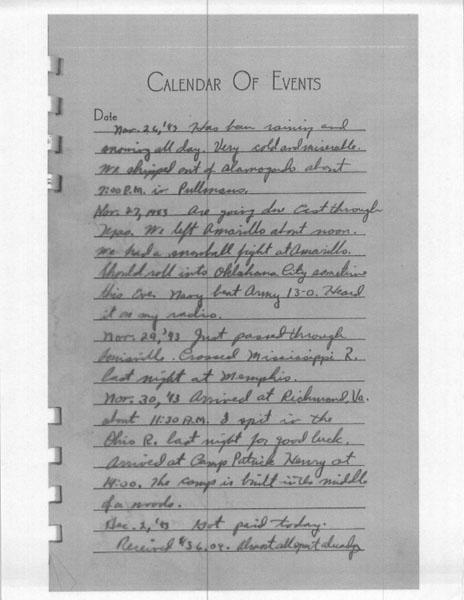 CALENDAR OF EVENTS
Date
Nov. 26, '43 Has been raining and
snowing all day. Very cold and miserable.
We shipped out of Alamogordo about
7:00 P.M. in Pullmans.
Nov. 27, 1943 Are going due East through
Texas. We left Amarillo about noon.
We had a snowball fight at Amarillo.
Should roll into Oklahoma City sometime
this Eve. Navy beat Army 13-0. Heard
it on my radio.
Nov. 29, '43 Just passed through
Louisville. Crossed Mississippi R.
last night at Memphis.
Nov. 30, '43 Arrived at Richmond, Va.
about 11:30 A.M. I spit in the
Ohio R. last night for good luck.
Arrived at Camp Patrick Henry at
14:00. The camp is built in the middle
of a woods.
Dec. 2, '43 Got paid today.
Received $36.04. Almost all spent already